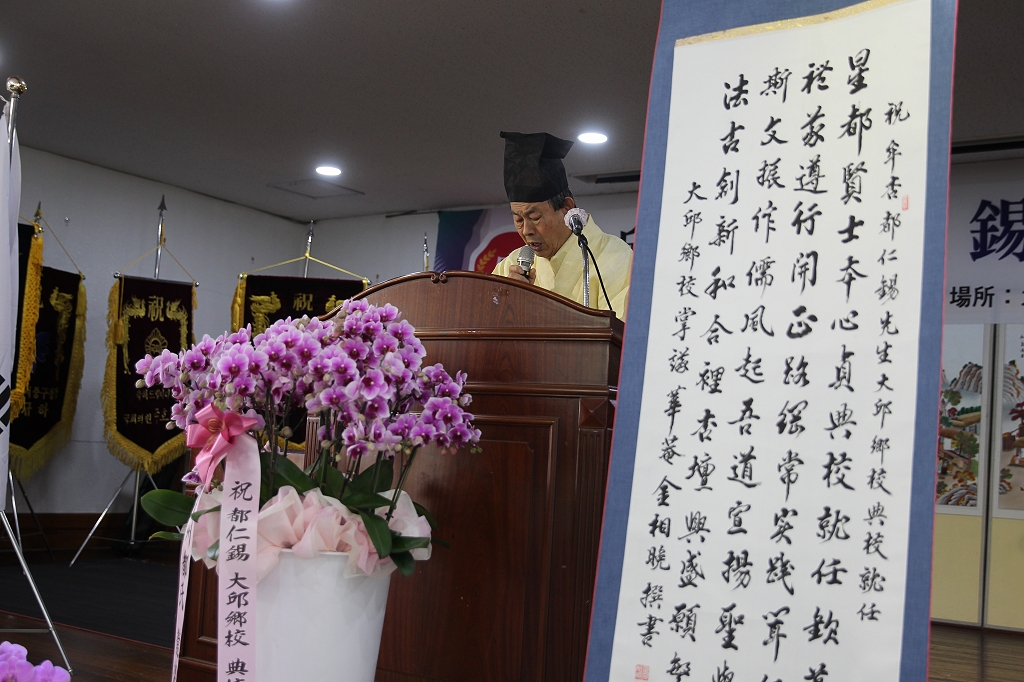 祝 都仁錫先生大邱鄕校典校就任
星都賢士本心貞典校就任欽
遵行開正路綱常実践
斯文振作儒風起吾道宣揚聖
法古創新和合裡杏壇興盛願
大邱鄕校掌議華菴金相晩撰書
祝 都仁錫 大邱鄕校 典
祝
祝
錫
場所 :